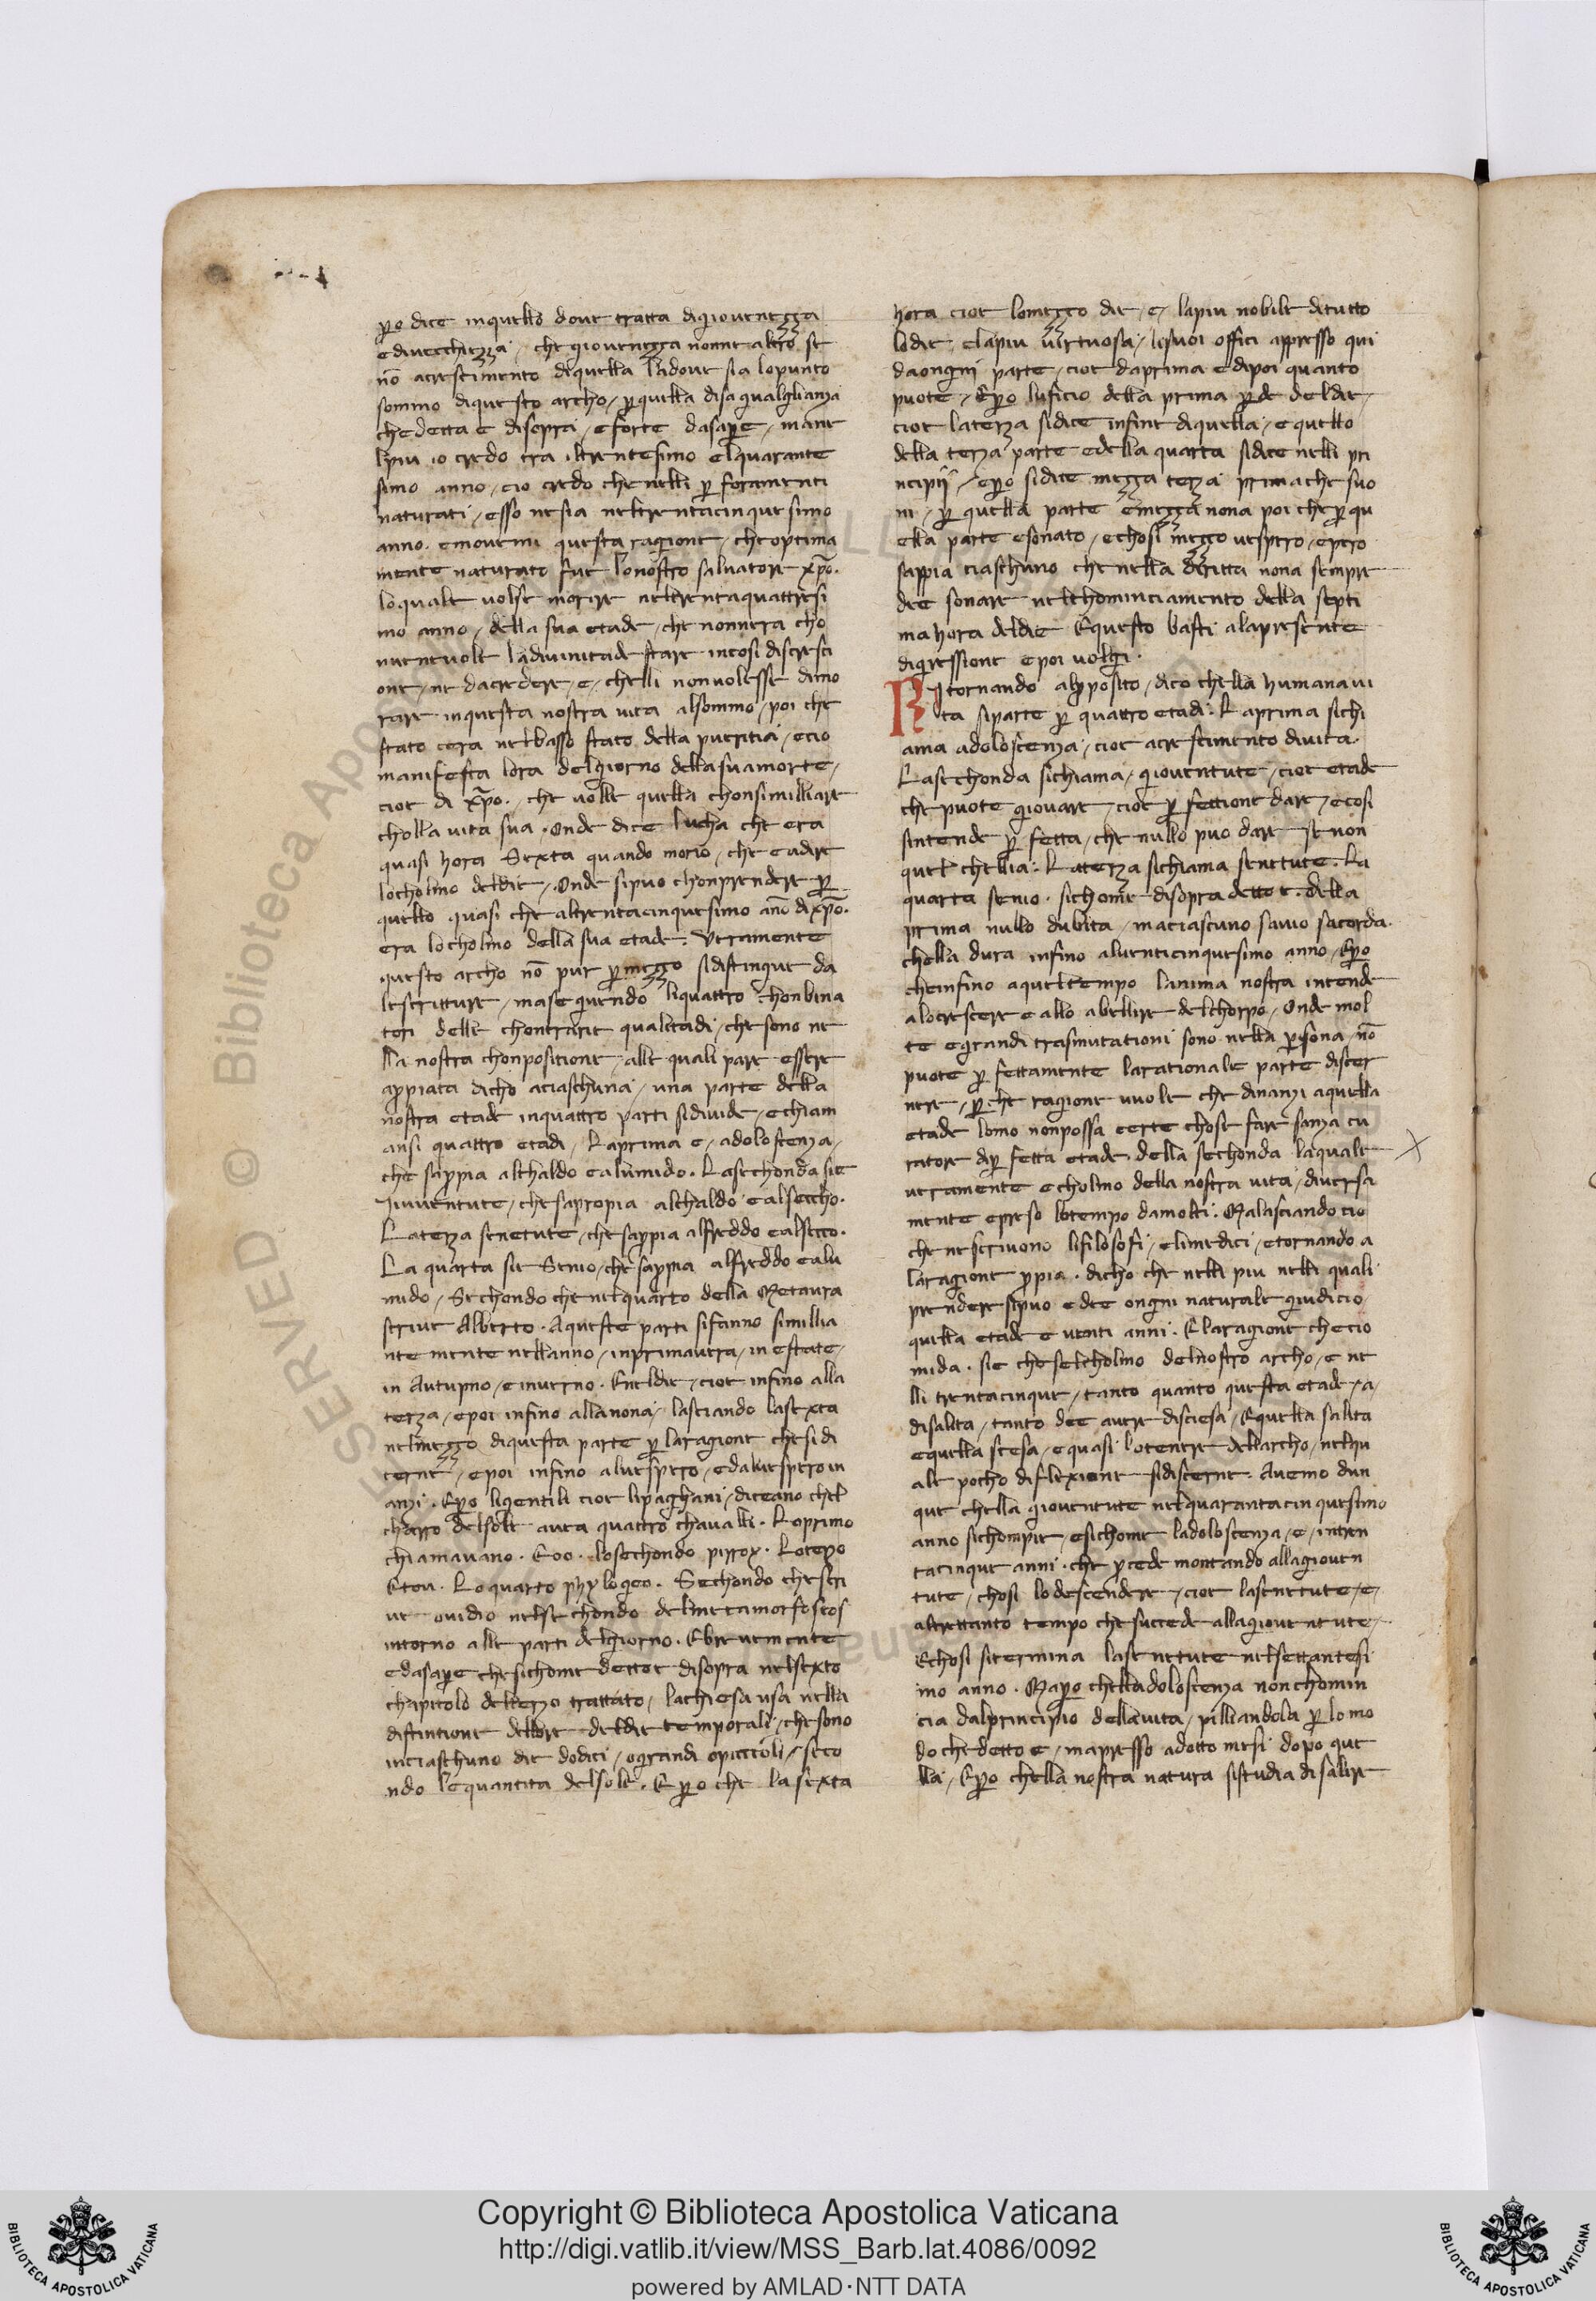 pero dice in quello doue tratta digiouenezza
ediuecchiezza / che giouenezza nonne altro se
nō acrescimento diquella Ladoue sia lopunto
sommo diquesto archo / ꝑ quella disagualglianza
che detta e disopra / e forte dasapere / mane
lpiu io credo tra iltrentesimo elquarante
simo anno / eio credo che nelli ꝑfectamenti
naturati / esso nesia neltrentacinquesimo
anno. emouemi questa ragione / che optima
mente naturato fue lonostro saluatore xp̄o.
loquale uolse morire neltrentaquattresi
mo anno / della sua etade / che nonnera cho
nueneuole ladiuinitade stare incosi discresci
one / ne dacredere / e / chelli nonuolesse dimo
rare inquesta nostra uita alsommo / poi che
stato cera nelbasso stato della pueritia / ecio
manifesta lora delgiorno della suamorte /
cioe di xp̄o. / che uolle quella chonsimilliare
cholla uita sua. Onde dice lucha che era
quasi hora Sexta quando morio / che eadire
locholmo deldie / Onde sipuo chonprendere ꝑ
quello quasi che altrentacinquesimo anō dixp̄o.
era locholmo della sua etade. Veramente
questo archo nō pur ꝑmezzo sidistingue da
lescritture / ma seguendo liquattro chonbina
tori delle chontrarie qualitadi / che sono ne
lla nostra chonpositione / alle quali pare essere
appiata dicho aciaschuna / una parte della
nostra etade inquattro parti sidiuide / echiam
ansi quattro etadi / Laprima e / adoloscenza /
che sappia alchaldo ealumido. Lasechonda sie
Iuuentute / che sapropia alchaldo ealseccho.
Laterza senetute / che sappia alfreddo ealsecco.
La quarta sie Senio / che sappia alfreddo ealu
mido / Sechondo che nelquarto della Metaura
scriue Alberto. Aqueste parti sifanno simillia
ntemente nellanno / inprimauera / in estate /
in Autupno / einuerno. Eneldie / cioe infino alla
terza / epoi infino allanona / lasciando lasexta
nelmezzo diquesta parte ꝑ laragione che si di
cerne / epoi infino aluespero / edaluespero in
anzi. Eꝑo ligentili cioe lipaghani / diceano chel
charro delsole auea quattro chaualli. Loprimo
chiamauano. Eoo. losechondo pirox. Loterzo
Eton. Loquarto phylogeo. Sechondo che scri
ue ouidio nelsechondo delmetamorfoseos
intorno alle parti delgiorno. Ebreuemente
edasapere che sichome dettoe disopra nelsexto
chapitolo delterzo trattato / lachiesa usa nella
distintione dellore deldie temporali / che sono
inciaschuno die dodici / ograndi opiccioli / seco
ndo lequantita delsole. Eꝑo che la sexta
hora cioe lomezzo die / e / lapiu nobile ditutto
lodie / elapiu uirtuosa / lisuoi offici appresso qui
daongni parte / cioe daprima edipoi quanto
puote / Eꝑo luficio della prima ꝑte deldie /
cioe laterza sidice infine diquella / equello
della terza parte edella quarta sidice nelli pri
ncipij / eꝑo sidice mezza terza prima che suo
ni / ꝑ quella parte emezza nona poi che ꝑ qu
ella parte esonato / echosi mezzo uespero / epero
sappia ciaschuno che nella diritta nona sempre
dee sonare nelchominciamento della septi
ma hora deldie Equesto basti alapresente
digressione epoi uolgi.
Ritornando alꝓposito / dico chella humana ui
ta siparte ꝑ quattro etadi. Laprima sichi
ama adoloscenza / cioe acrescimento diuita.
Lasechonda sichiama / giouentute / cioe etade
che puote giouare / cioe ꝑfettione dare / ecosi
sintende ꝑfetta / che nullo puo dare se non
quel chellia. Laterza sichiama senetute. La
quarta senio. sichome disopra detto e. della
prima nullo dubita / maciascuno sauio sacorda
chella dura infino aluenticinquesimo anno / Eꝑo
cheinfino aqueltempo lanima nostra intende
alocrescere e allo abellire delchorpo / Onde mol
te egrandi trasmutationi sono nella ꝑsona / nō
puote ꝑfettamente larationale parte discer
nere / ꝑche ragione uuole che dinanzi aquella
etade lomo nonpossa certe chose fare sanza cu
ratore diꝑfetta etade. della sechonda laquale X
ueramente echolmo della nostra uita / diuersa
mente epreso lotempo damolti. Malasciando cio
che nescriuono lifilosofi / elimedici / etornando a
laragione ꝓpia. dicho che nelli piu nelli quali
prendere sipuo edee ongni naturale giudicio
quella etade e uenti anni. Elaragione checio
mida. sie che selcholmo delnostro archo / e ne
lli trentacinque / tanto quanto questa etade / a /
disalita / tanto dee auere discesa / Equella salita
equella scesa / equasi lotenere dellarcho / nelqu
ale pocho diflexione sidiscerne. Auemo dun
que chella giouentute nelquarantacinquesimo
anno sichompie / esichome ladoloscenza / e / intren
tacinque anni. che ꝓcede montando allagiouen
tute / chosi lodescendere / cioe lasenetute / e /
altrettanto tempo che succede allagiouentute /
Echosi sitermina lasenetute nelsettantesi
mo anno. Maꝑo chelladoloscenza nonchomin
cia dalprincipio dellauita / pilliandola ꝑ lo mo
do che detto e / mapresso adotto mesi dopo que
lla / Eꝑo chella nostra natura sistudia di salire
RESERVED © Biblioteca Apostolica Vaticana
BIBLIOTECA APOSTOLICA VATICANA
Copyright © Biblioteca Apostolica Vaticana
http://digi.vatlib.it/view/MSS_Barb.lat.4086/0092
powered by AMLAD·NTT DATA
BIBLIOTECA APOSTOLICA VATICANA